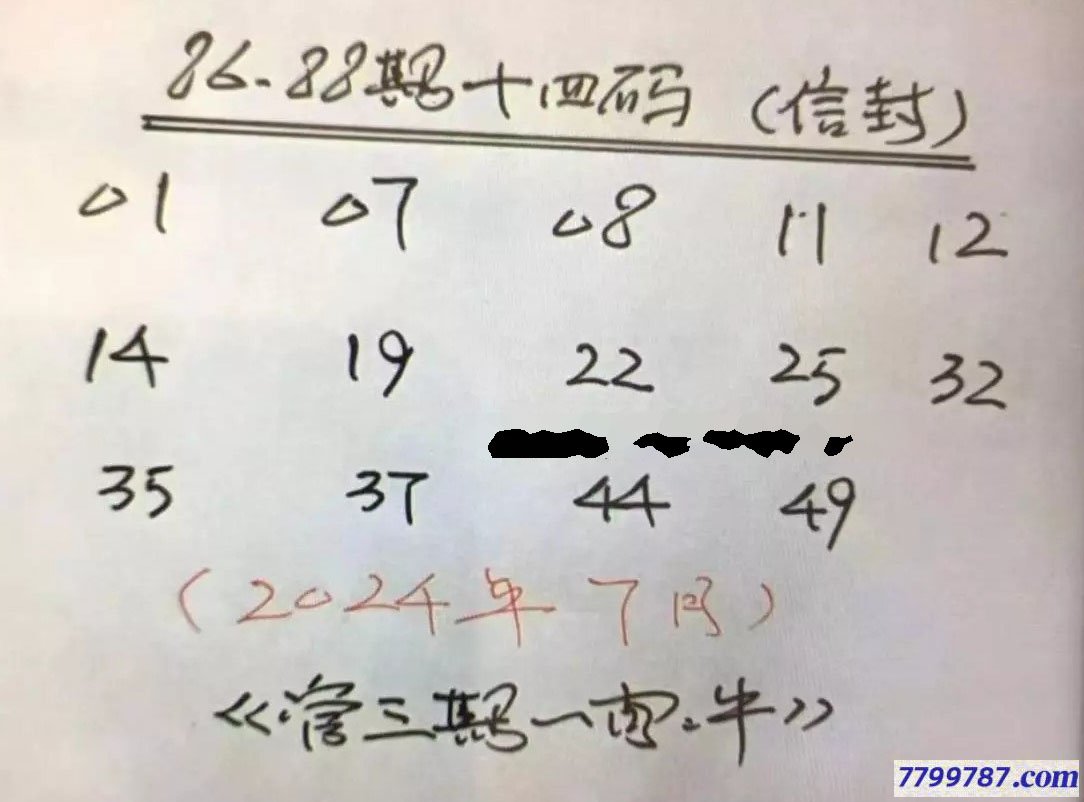 86-88期十四码（信封）
01 07 08 11 12
14 19 22 25 32
35 37 44 49
（2024年7月）
《管三期一肖.牛》
7799787.com